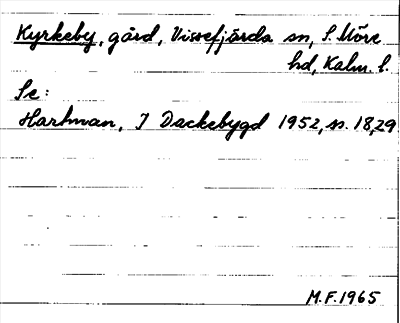 Kyrkeby, gård, Vissefjärda sn, S. Möre
hd, Kalm. l.
Se:
Hartman, I Dackebygd 1952, s. 18, 29
M.F. 1965